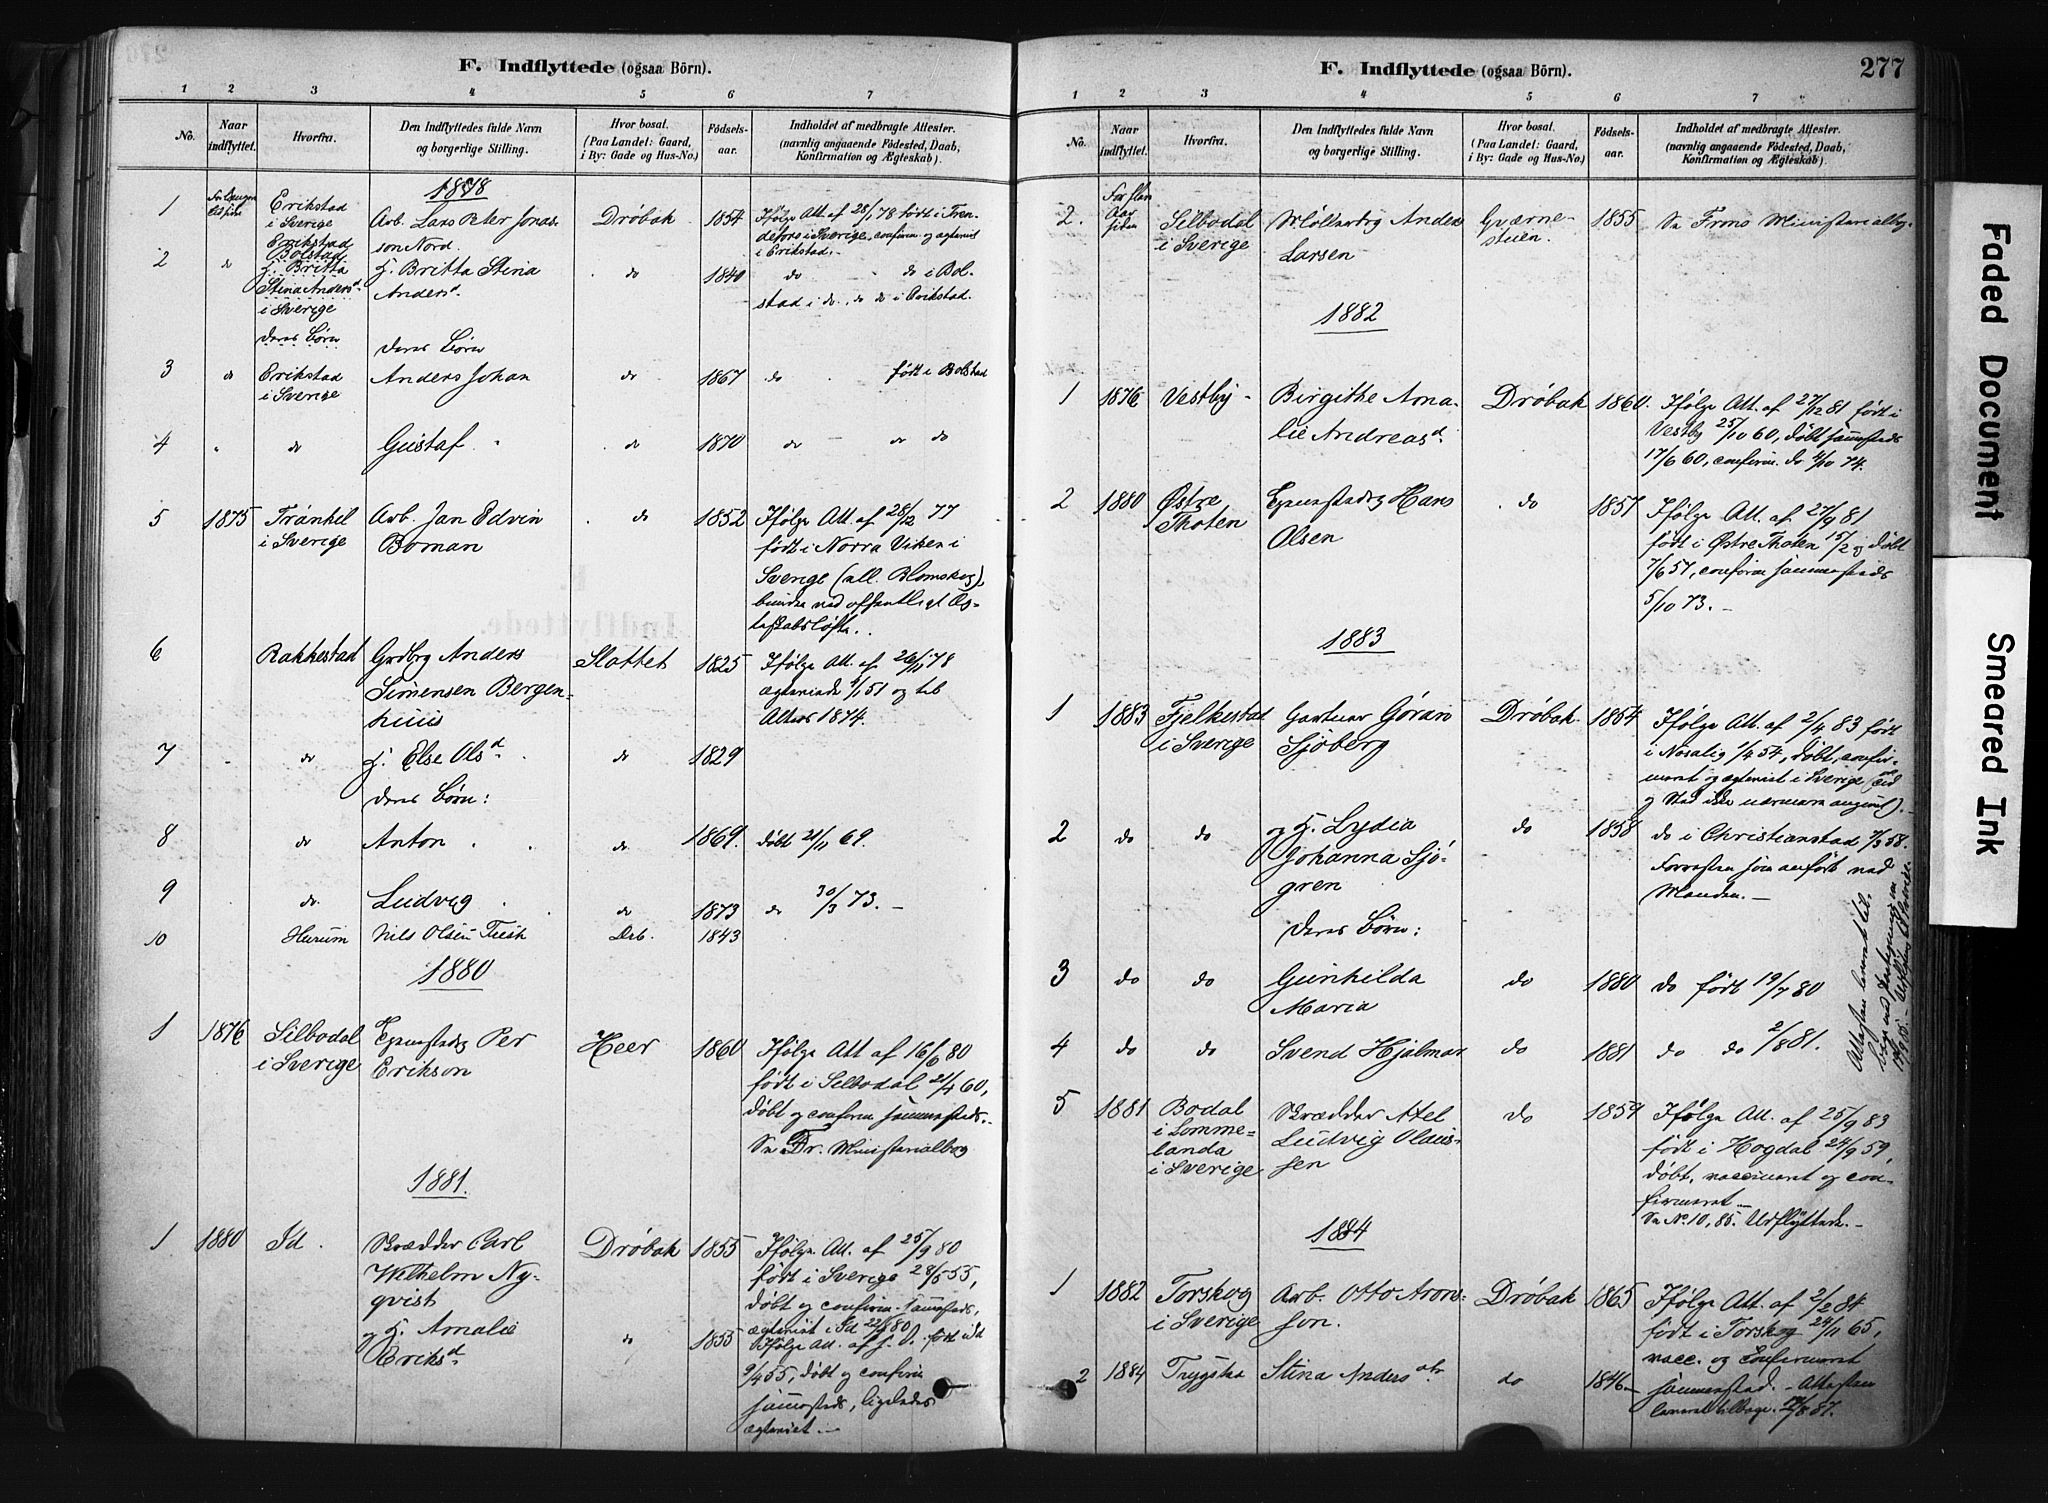 F. Indflyttede (ogsaa Börn).
1 2 3 4 5 6 7
No. Naar indflyttet. Hvorfra. Den Indflyttedes fulde Navn og borgerlige Stilling. Hvor bosat. (Paa Landet: Gaard, i By: Gade og Hus-No.) Födselsaar. Indholdet af medbragte Attester. (navnlig angaaende Födested, Daab, Konfirmation og Ægteskab).
1878
1 Erikstad i Sverige Arb. Lars Peter Jonasson Nord. Dröbak 1854 Ifölge Att. af 28/1 78 födt i
i Sverige, confirm. og ægteviet
i Erikstad.
2 do Bolstad i Sverige H. Britta Stina Andersd. do 1840 do do i Bolstad i do. do do i Erikstad.
deres Börn
3 do Erikstad i Sverige Anders Johan do 1867 do födt i Bolstad
4 " do Gustaf do 1870 do do do
5 1875 Trankil i Sverige Arb. Jan Edvin Boman do 1852 Ifölge Att. af 28/12 77
födt i Norra Viken i
Sverige (all. Blomskog),
6 Rakkestad Grdbrg Anders Simensen Bergenhuus Slottet 1825 Ifölge Att. af 26/11 78
og til
Alters 1874.
7 do H. Else Olsd. do 1829
deres Börn:
8 do Anton do 1869. döbt 21/11 69.
9 do Ludvig do 1873 do 30/3 73.
10 Hurum Nils Olsen Tusk Drb. 1843
1880
1 1876 Silbodal i Sverige Per Erikson Heer 1860 Ifölge Att af 16/6 80
födt i Silbodal 21/4 60,
döbt og confirm sammesteds.
Se Dr. Ministerialbog
1881.
1 1880 Id. Skrædder Carl Wilhelm Nyqvist Dröbak 1855 Ifölge Att. af 25/9 80
födt i Sverige 28/5 55,
döbt og confirm. sammesteds,
ægteviet i Id
og H. Amalie Eriksd. do 1855 Ifölge Att. af
9/4 55, döbt og confirm
sammesteds, ligeledes
ægteviet.
F. Indflyttede (ogsaa Börn).
277
1 2 3 4 5 6 7
No. Naar indflyttet. Hvorfra. Den Indflyttedes fulde Navn og borgerlige Stilling. Hvor bosat. (Paa Landet: Gaard, i By: Gade og Hus-No.) Födselsaar. Indholdet af medbragte Attester. (navnlig angaaende Födested, Daab, Konfirmation og Ægteskab).
2. Silbodal i Sverige Anders Larsen 1855 Se Frons Ministerialbog.
1882
1 1876 Vestby Birgithe Amalie Andreasd. Dröbak 1860. Ifölge Att. af 27/12 81 födt i
Vestby 25/10 60, döbt sammesteds
17/6 60, confirm. do 4/10 74.
2 1880 Østre Thoten Hans Olsen do 1857 Ifölge Att. af 27/9 81
födt i Østre Thoten 15/2 og döbt
7/6 57, confirm sammesteds
5/10 73.
1883
1 1883 Fjelkestad i Sverige Gartner Göran Sjöberg Dröbak 1854 Ifölge Att. af 2/4 83 födt
i Nosalig 1/4 54, döbt, confirmeret og ægteviet i Sverige (Tid
og Sted ikke nærmere angivet).
2 do do og H. Lydia Johanna Sjögren do 1858 do i Christianstad 7/3 58.
Forresten som anfört ved
Manden.
deres Börn:
3 do do Gunhilda Maria do 1880 do födt 19/7 80
4 do do Svend Hjalmar do 1881 do do 2/8 81.
Attesten leveret til
5 1881 Bodal i Lommelanda i Sverige Skrædder Axel Ludvig Olaussen do 1859 Ifölge Att. af 25/9 83
födt i Hogdal 24/9 59,
döbt, vaccineret og confirmeret
Se No. 10, 85. Udflyttede.
1884
1 1882 Torskog i Sverige Arb. Otto Aronsson. Dröbak 1865 Ifölge Att. af 2/2 84
födt i Torskog 24/11 65,
vacc. og Confirmeret
sammested. Attesten
leveret tilbage.
2 1884 Trygstad Stina Andersdtr do 1846
Faded Document
Smeared Ink